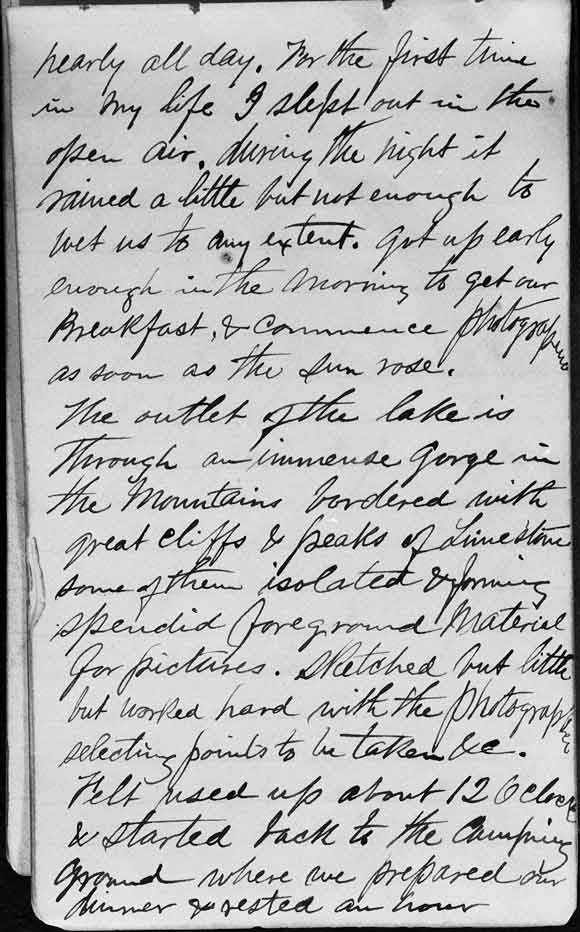 nearly all day. For the first time
in my life I slept out in the
open air. during the night it
rained a little but not enough to
wet us to any extent. got up early
enough in the morning to get our
Breakfast, & commence photographing
as soon as the sun rose.
The outlet of the lake is
through an immense gorge in
the Mountains bordered with
great cliffs & peaks of Limestone
some of them isolated & forming
spendid foreground Material
for pictures. Sketched but little
but worked hard with the photographer
selecting points to be taken &c.
Felt used up about 12 Oclock
& started back to the Camping
ground where we prepared our
dinner & rested an hour